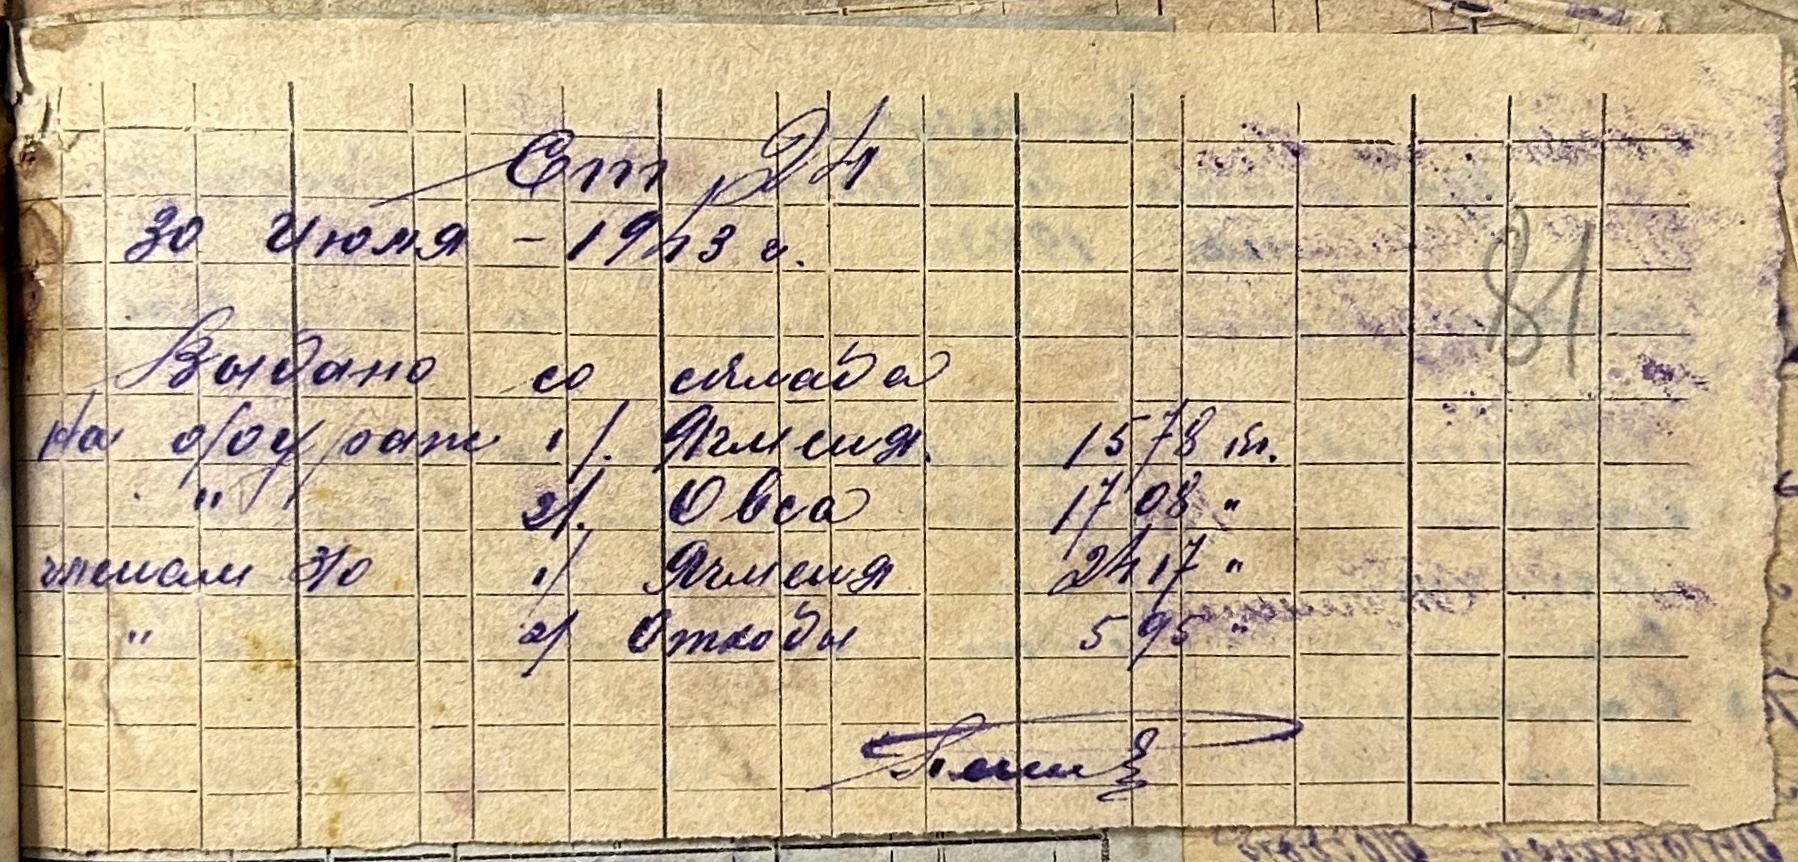 От 24
30 Июля - 1943 г.
81
Выдано со склада
На фураж 1/. Ячменя. 1578 кг.
" 2/. Овса 1708 "
членам з/о 1/ Ячменя 2417 "
" 2/ Отходы 595 "